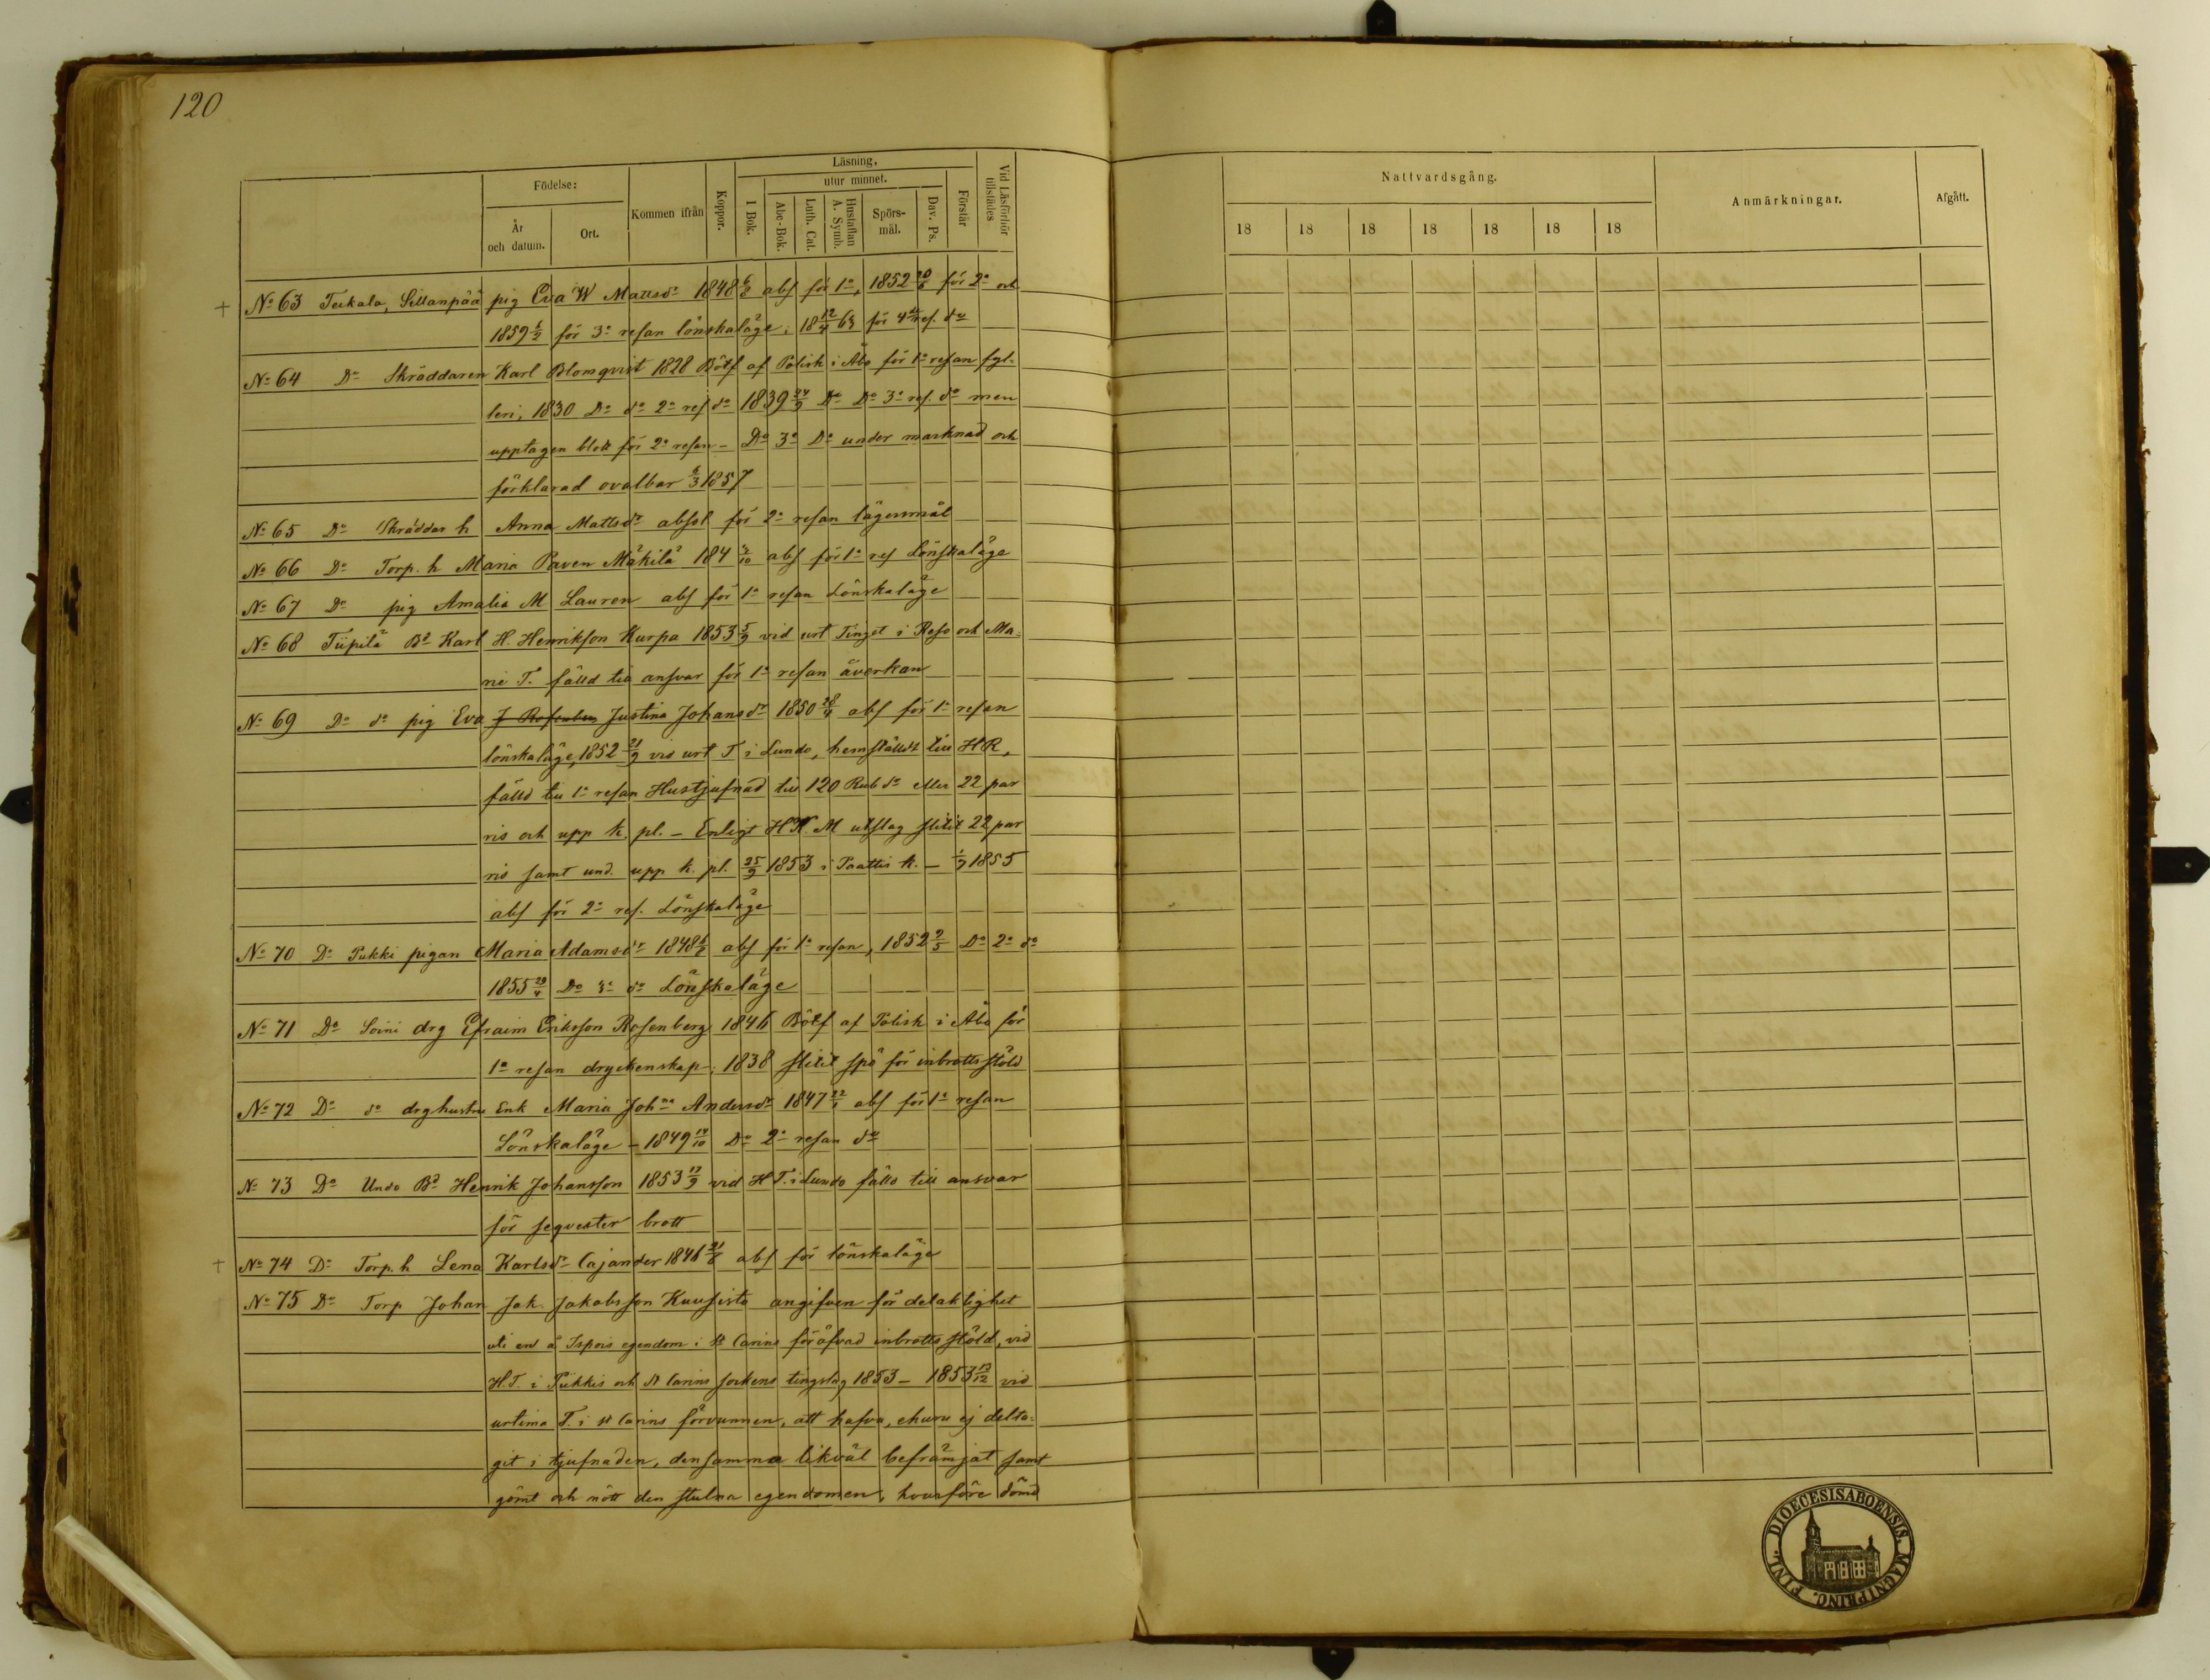 120
Födelse:
År och datum.
Ort.
Kommen ifrån
Koppor.
Läsning,
utur minnet.
I Bok.
Abc-Bok.
Luth. Cat.
Hustaflan A. Symb.
Spörs-mål.
Dav. Ps.
Förstår
Vid Läsförhör tillstädes
Nattvardsgång.
18 18 18 18 18 18 18
Anmärkningar.
Afgått.
+ No 63 Teekala, Sillanpää pig Eva W Mattsdr 1848 6/8 abs för 1a, 1852 20/6 för 2a och
1859 för 3a resan lönskaläge; 18 12/4 63 för 4de res. do
No 64 Do Skräddaren Karl Blomqvist 1828 Bötf af Polisk i Åbo för 1a resan fyl-
leri, 1830 Do do 2a res do 1839 Do Do 3a res. do men
upptagen blott för 2a resan – Do 3a Do under marknad och
förklarad ovalbar 1857
No 65 Do Skräddar h Anna Mattsdr absol för 2a resan lägersmål
No 66 Do Torp. h Maria Paven Mäkilä 184 abs för 1a res Lönskaläge
No 67 Do pig Amalia M Lauren abs för 1a resan Lönskaläge
No 68 Tiipilä Bd Karl H. Henrikson Kurpa 1853 5/9 vid urt Tinget i Reso och Ma-
rie T. fälld till ansvar för 1a resan åverkan
No 69 Do do pig Eva J Rosenberg Justina Johansdr 1850 28/4 abs för 1a resan
lönskaläge, 1852 21/9 vid urt T i Lundo, hemställdt till HR,
fälld till 1a resan Hustjufnad till 120 Rub Sr eller 22 par
ris och upp k. pl. – Enligt HK. M utslag slitit 22 par
ris samt und. upp k. pl. 25/9 1853 i Paattis k. – 1/7 1855
abs för 2a res. Lönskaläge
No 70 Do Pukki pigan Maria Adamsdr 1848 abs för 1a resan, 1852 9/5 Do 2a do
1855 29/4 Do 3a do Lönskaläge
No 71 Do Soini drg Efraim Eriksson Rosenberg 1846 Bötf af Polisk i Åbo för
1a resan dryckenskap; 1838 slitit spö för inbrottsstöld
No 72 Do do drghustru Enk Maria Johna Andersdr 1847 22/1 abs för 1a resan
Lönskaläge – 1849 14/10 Do 2a resan do
No 73 Do Undo Bd Henrik Johansson 1853 17/9 vid HT. i Lundo fälld till ansvar
för seqvester brott
+ No 74 Do Torp. h Lena Karlsdr Cajander 1846 21/8 abs för lönskaläge
No 75 Do Torp Johan Jak. Jakobsson Kuusisto angifven för delaktighet
uti en å Ispois egendom i St Carins föröfvad inbrotts stöld, vid
H.T. i Piikkis och St Carins sockens tingslag 1853 – 1853 13/12 vid
urtima T. i St Carins förvunnen, att hafva, ehuru ej delta-
git i tjufnaden, densamma likväl befrämjat samt
gömt och nött den stulna egendomen, hvarföre dömd
DIOECESIS ABOENSIS. MAGNI PRINC. FINL.